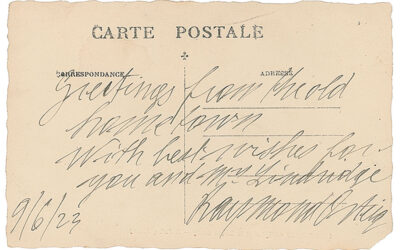 CARTE POSTALE
CORRESPONDANCE
ADRESSE
Greetings from the old
home town
With best wishes for
you and Mrs
Raymond Orteig
9/6/23